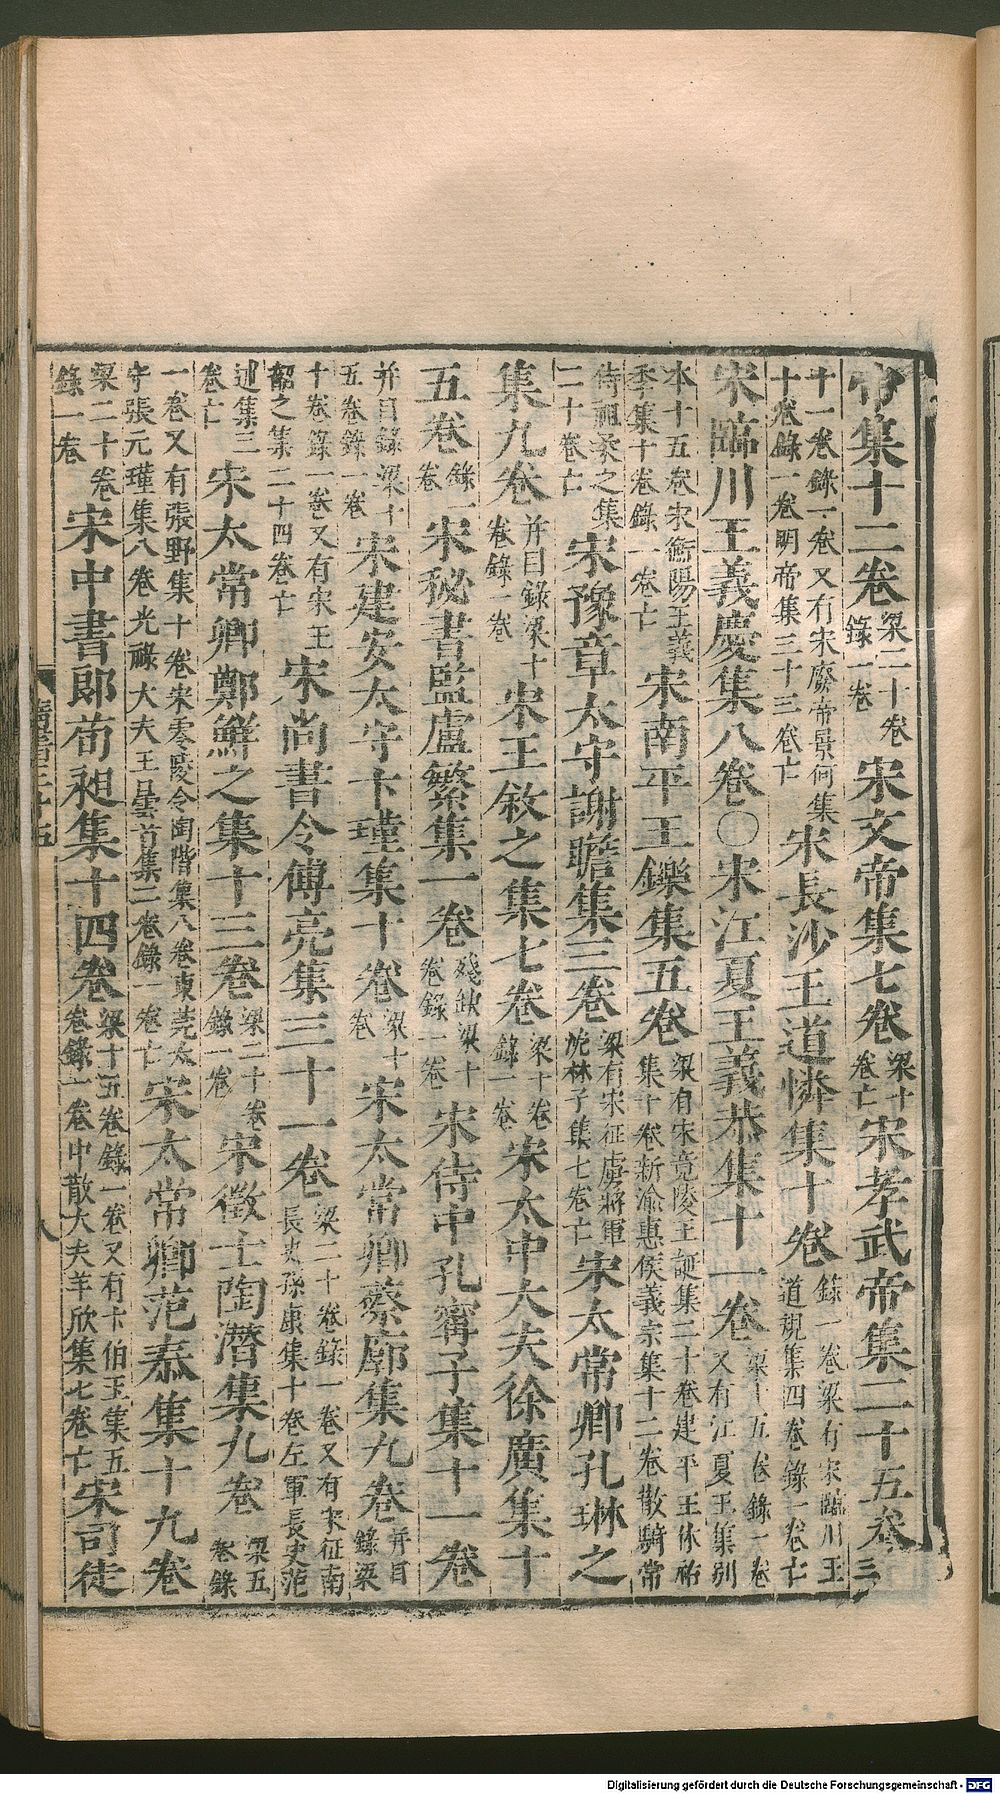 帝集十二卷梁二十卷錄一卷宋文帝集七卷梁十卷亡宋孝武帝集二十五卷三
十一卷錄一卷又有宋廢帝景和集十卷錄一卷明帝集三十三卷亡宋長沙王道憐集十卷錄一卷梁有宋臨川王道規集四卷錄一卷亡
宋臨川王義慶集八卷〇宋江夏王義恭集十一卷梁十五卷錄一卷又有江夏王集別
本十五卷宋衡陽王義季集十卷錄一卷亡宋南平王鑠集五卷梁有宋竟陵王誕集二十卷建平王休祐集十卷新渝惠侯義宗集十二卷散騎常
侍祖柔之集二十卷亡宋豫章太守謝瞻集三卷梁有宋征虜將軍沈林子集七卷亡宋太常卿孔琳之
集九卷并目錄梁十卷錄一卷宋王敘之集七卷梁十卷錄一卷宋太中大夫徐廣集十
五卷錄一卷宋秘書監盧繁集一卷殘缺梁十卷錄一卷宋侍中孔甯子集十一卷
并目錄梁十五卷錄一卷宋建安太守卞瑾集十卷梁十卷宋太常卿蔡廓集九卷并目錄梁
十卷錄一卷又有宋王韶之集二十四卷亡宋尚書令傅亮集三十一卷梁二十卷錄一卷又有宋征南長史孫康集十卷左軍長史范
述集三卷亡宋太常卿鄭鮮之集十三卷梁二十卷錄一卷宋徵士陶潛集九卷梁五卷錄
一卷又有張野集十卷宋零陵令陶階集八卷東莞太守張元瑾集八卷光祿大夫王曇首集二卷錄一卷亡宋太常卿范泰集十九卷
梁二十卷錄一卷宋中書郎荀昶集十四卷梁十五卷錄一卷又有卞伯玉集五卷錄一卷中散大夫羊欣集七卷亡宋司徒
八
Digitalisierung gefördert durch die Deutsche Forschungsgemeinschaft - DFG